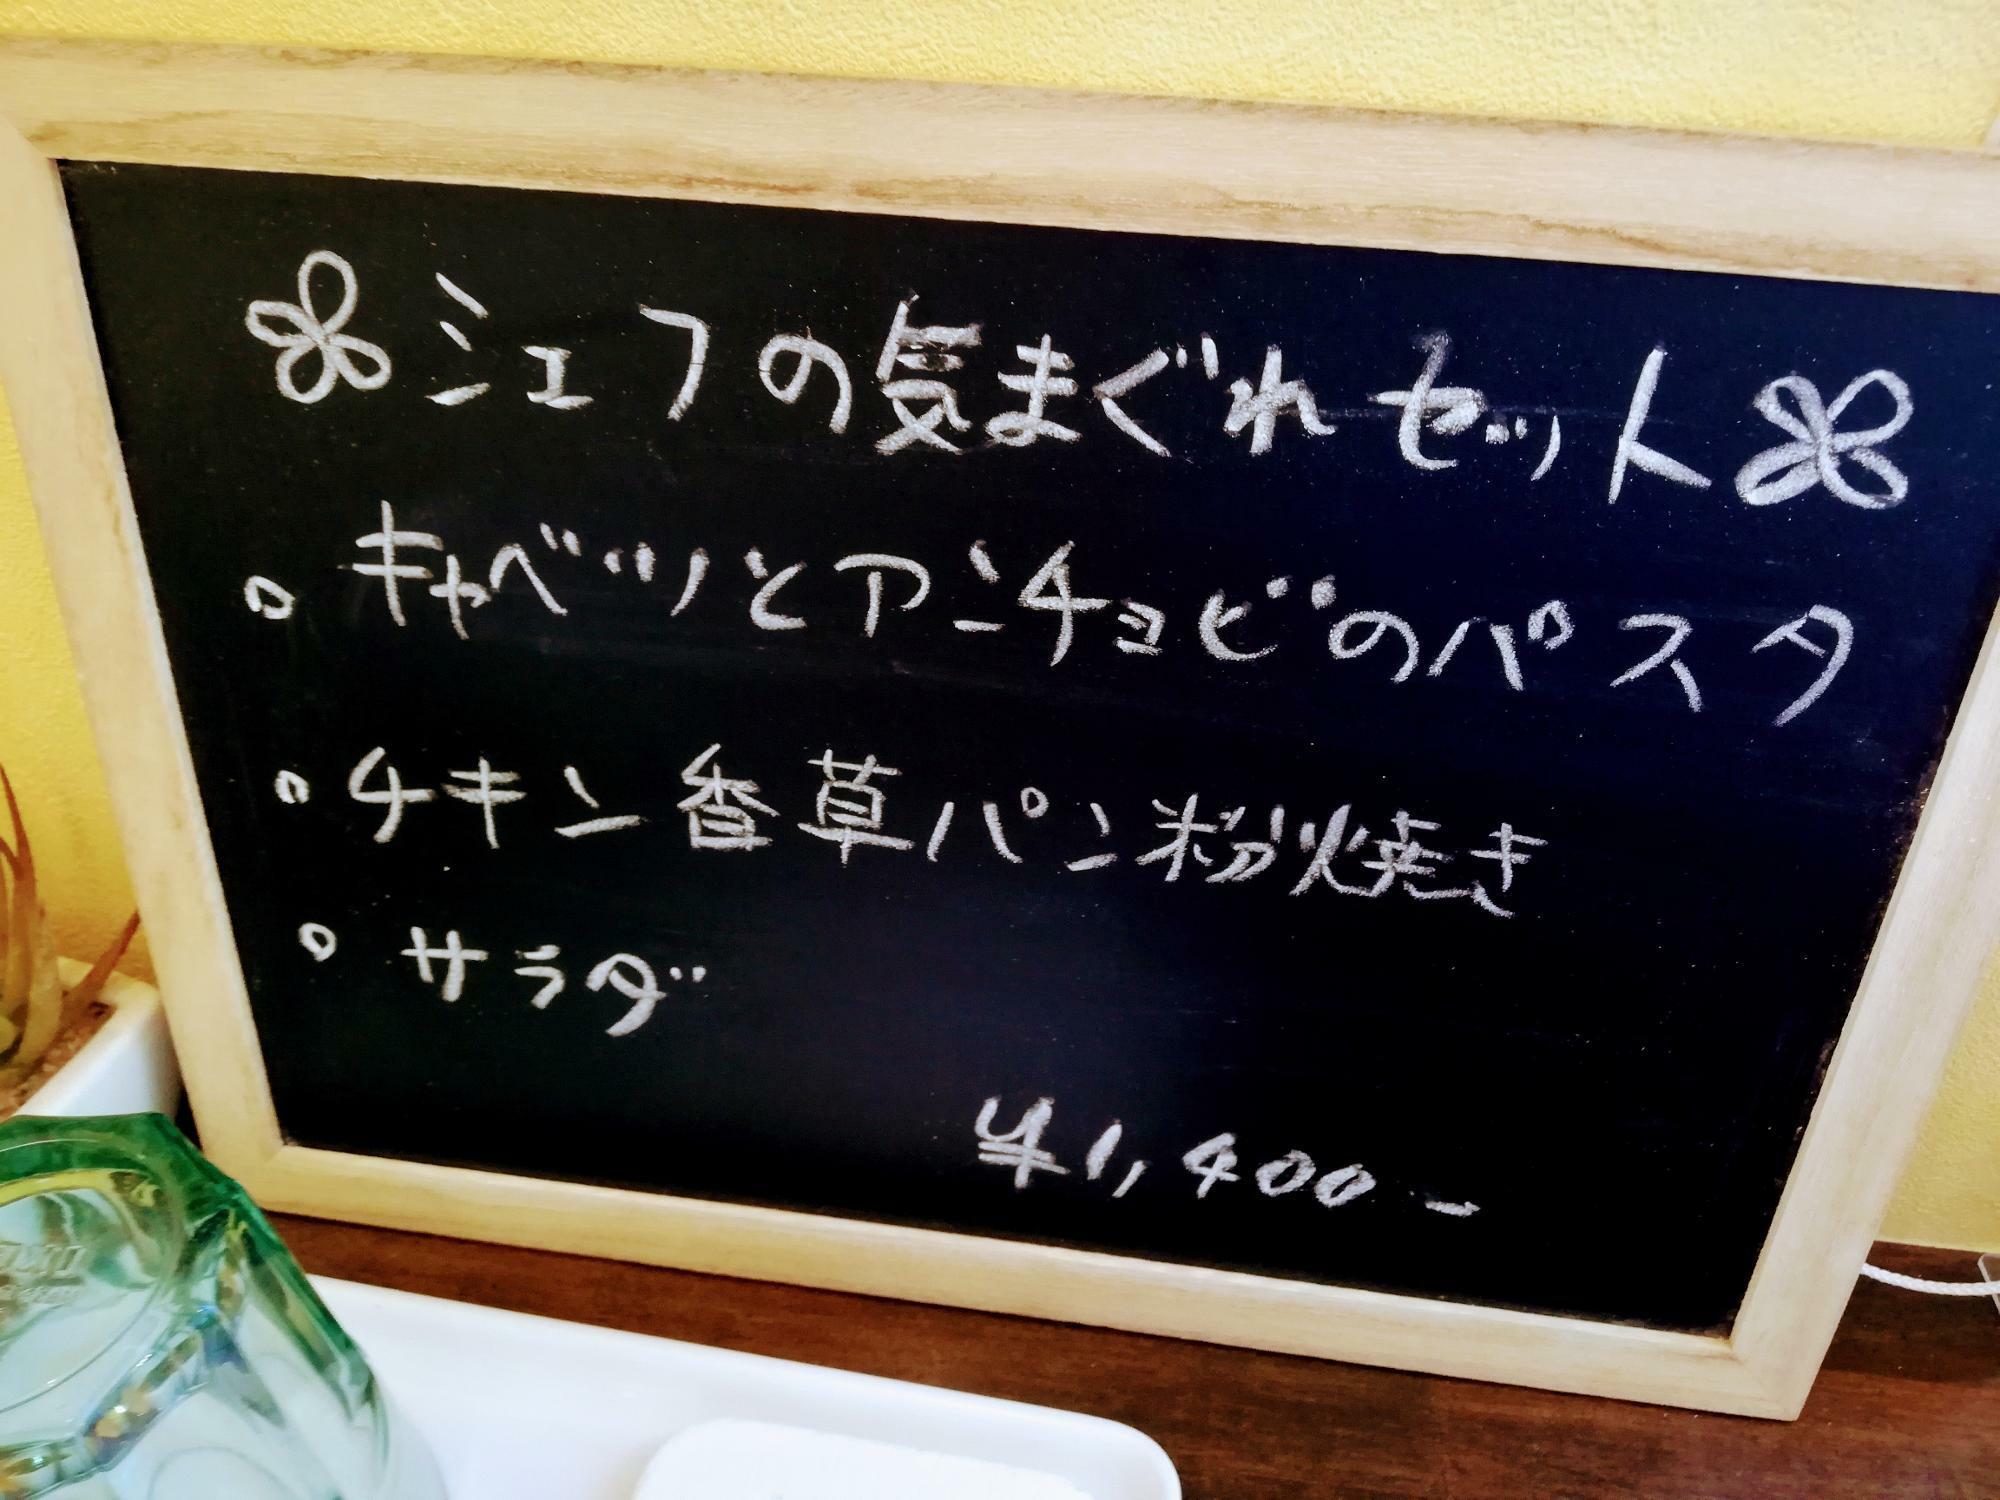 シェフの気まぐれセット
。キャベツとアンチョビのパスタ
。チキン香草パン粉焼き
。サラダ
¥1,400-